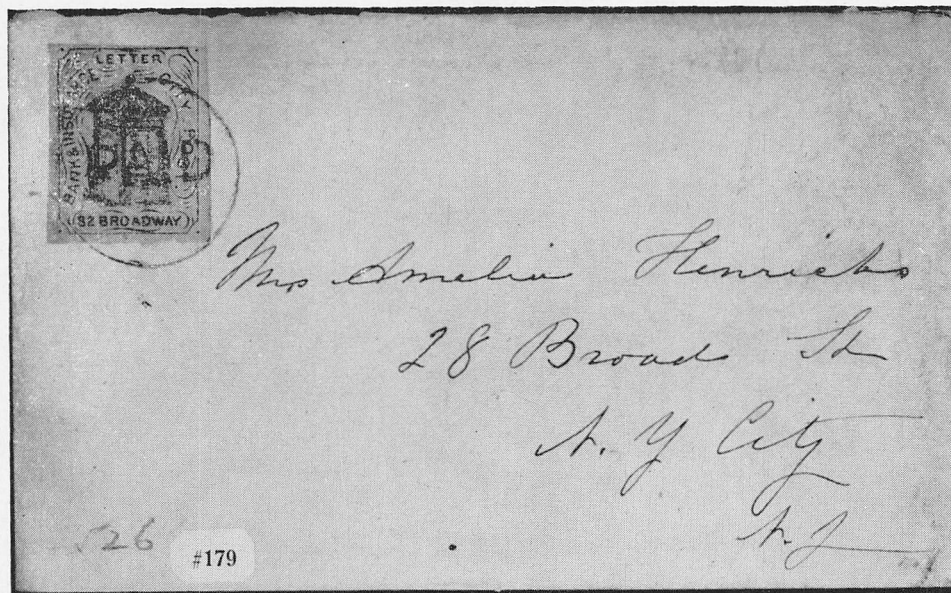 LETTER
BANK & INSURANCE CITY POST
PAID
82 BROADWAY
Mrs Amelia Henricks
28 Broad St
N. Y City
N. Y
526
#179